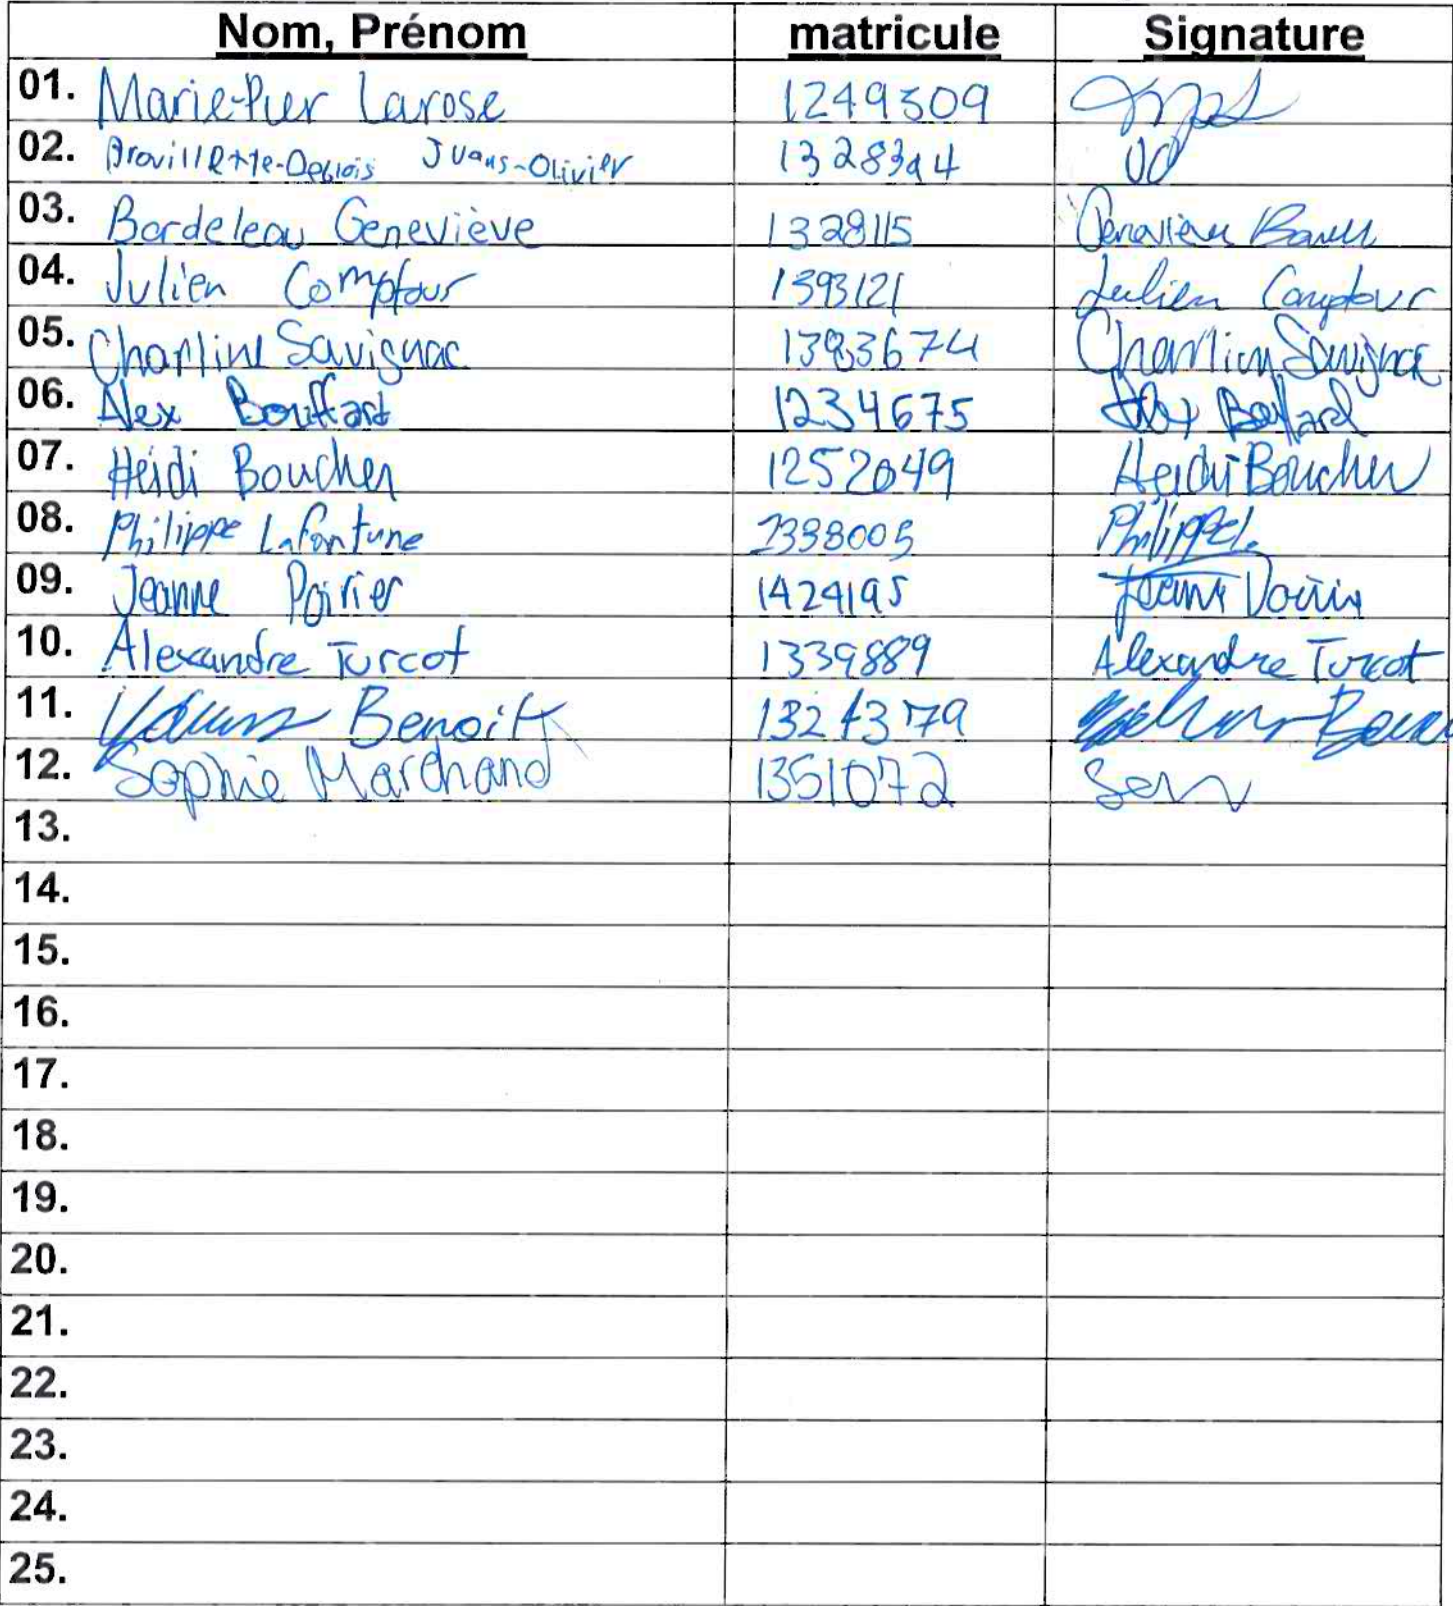 Nom, Prénom matricule Signature
01. Marie-Pier Larose 1249509
02. Brouillette-Deblois 1328394
03. Bordeleau Geneviève 1328115 Geneviève
04. Julien Comptour 1393121 Julien Comptour
05. Charline Savignac 1383674 Charline Savignac
06. Alex Bouffard 1234675 Alex Bouffard
07. Heidi Boucher 1252049 Heidi Boucher
08. Philippe Lafontune 2398005 Philippe L.
09. Jeanne Poirier 1424195 Jeanne Poirier
10. Alexandre Turcot 1339889 Alexandre Turcot
11. Benoit
12. Sophie Marchand 1351072
13.
14.
15.
16.
17.
18.
19.
20.
21.
22.
23.
24.
25.